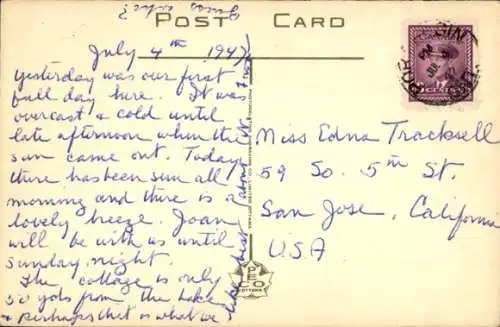 Guess who?
POST CARD
July 4th 1947
yesterday was our first
full day here. It was
overcast & cold until
late afternoon when the
sun came out. Today
there has been sun all
morning and there is a
lovely breeze. Joan
will be with us until
Sunday night.
The cottage is only
50 yds from the lake
& perhaps that is what we
like best about it
Miss Edna Tracksell
59 So. 5th St.
San Jose, California
U.S.A
PECO
CENTS